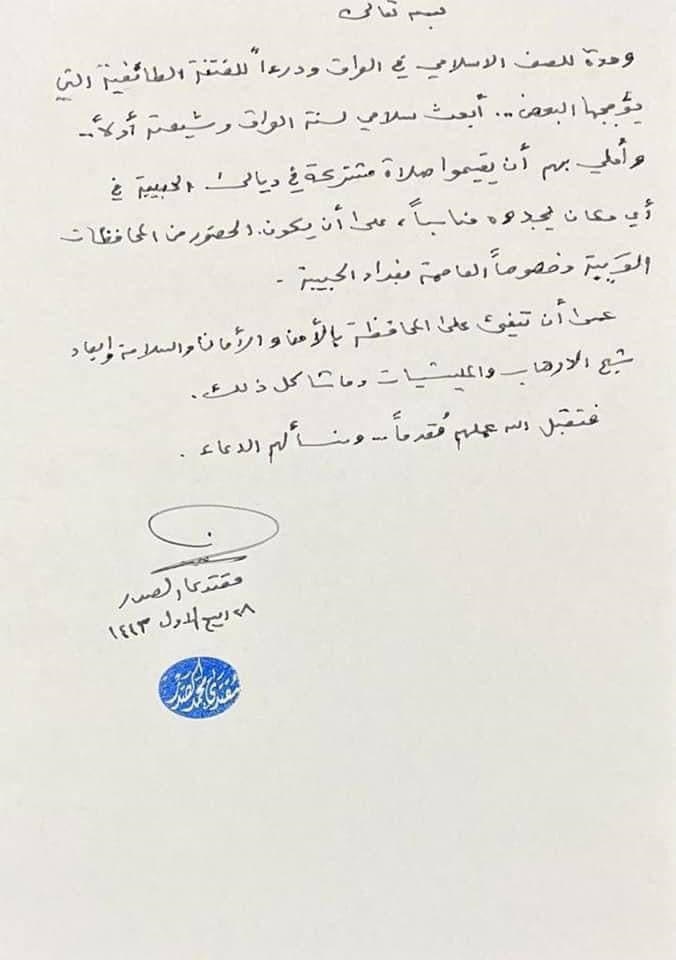 بسمه تعالى
وحدة للصف الاسلامي في العراق ودرءاً للفتنة الطائفية التي
يؤججها البعض .. أبعث سلامي لسنة العراق وشيعته أولاً ..
وأملي بهم أن يقيموا صلاة مشتركة في ديالى الحبيبة في
أي مكان يجدوه مناسباً، على أن يكون الحضور من المحافظات
القريبة وخصوصاً العاصمة بغداد الحبيبة .
عسى أن تنعم على المحافظة بالأمن والأمان والسلامة وإبعاد
شبح الارهاب والميليشيات وما شاكل ذلك .
فتقبل الله عملهم مُقدماً .. ونسألهم الدعاء .
مقتدى الصدر
٢٨ ربيع الاول ١٤٤٣
مقتدى محمد الصدر